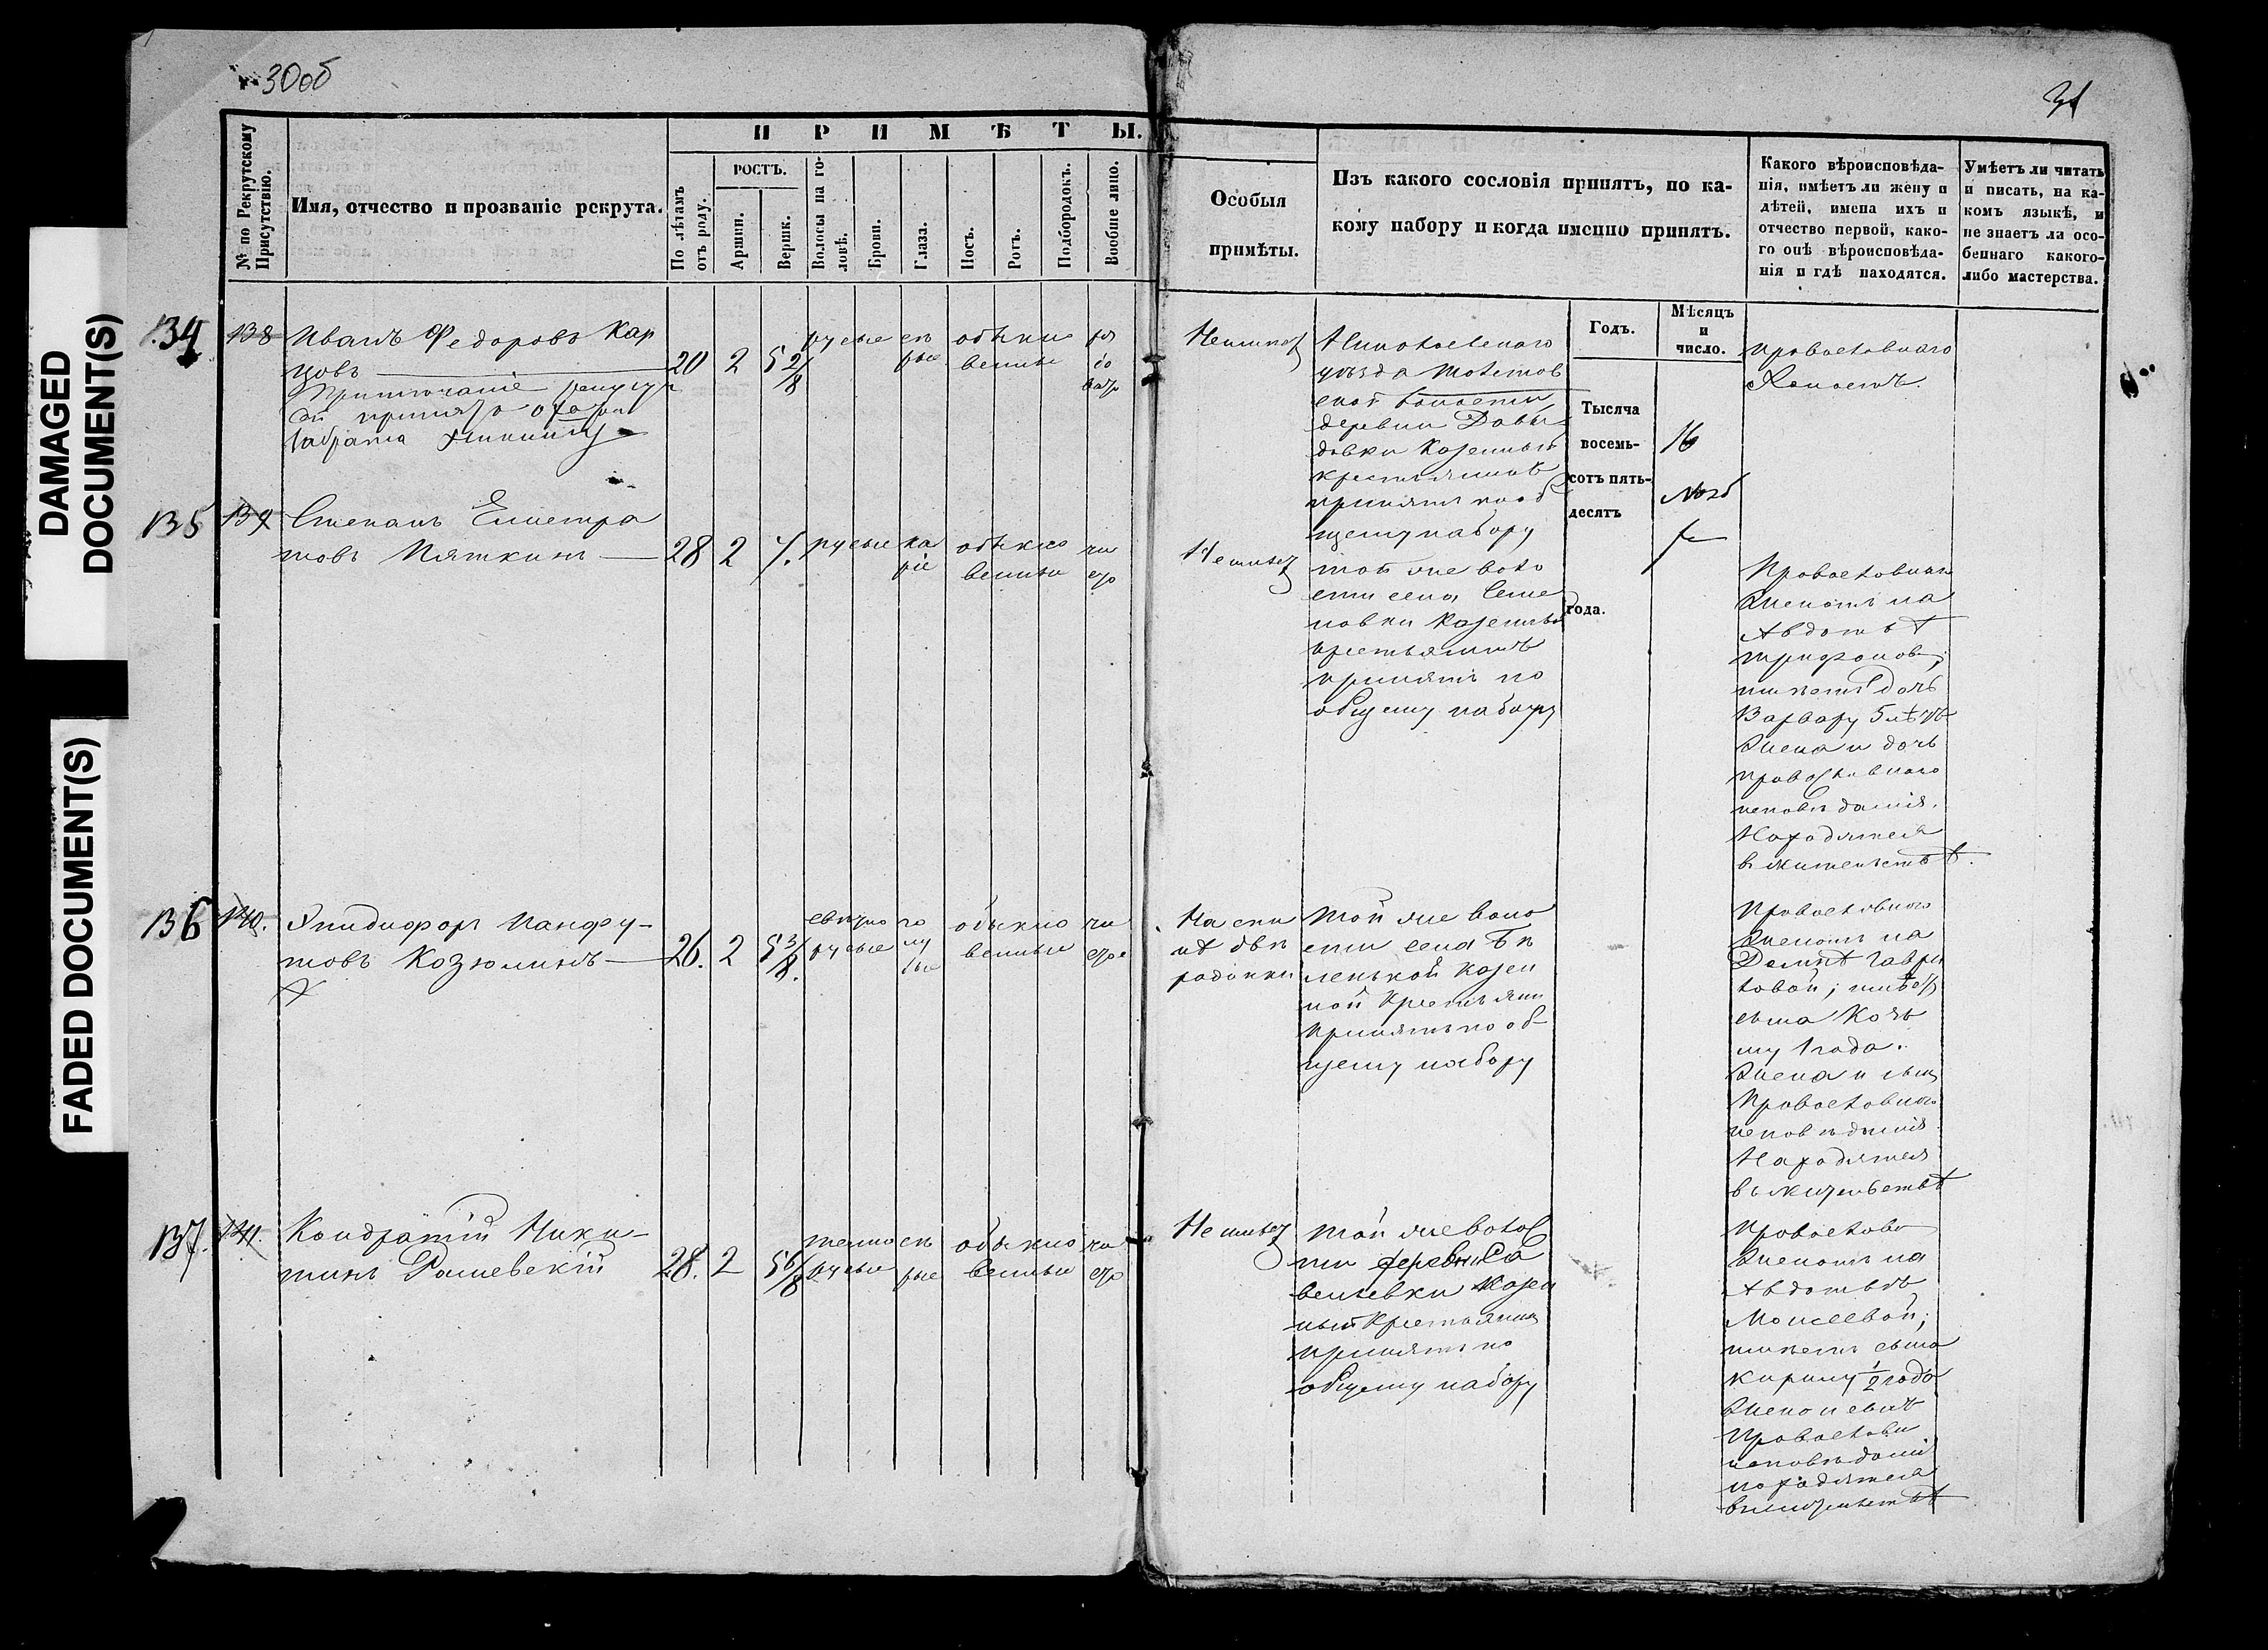 30об
31
DAMAGED
DOCUMENT(S)
FADED DOCUMENT(S)
№ по Рекрутскому
Присутствію.
Имя, отчество и прозваніе рекрута.
П Р И М Ѣ Т Ы.
По лѣтамъ
отъ роду.
РОСТЪ.
Аршин.
Вершк.
Волосы на го-
ловѣ.
Брови.
Глаза.
Носъ.
Ротъ.
Подбородокъ.
Вообще лицо.
Особыя
примѣты.
Изъ какого сословія принятъ, по ка-
кому набору и когда именно принятъ.
Годъ.
Мѣсяцъ
и
число.
Какого вѣроисповѣда-
нія, имѣетъ ли жену и
дѣтей, имена ихъ и
отчество первой, како-
го онѣ вѣроисповѣда-
нія и гдѣ находятся.
Умѣетъ ли читать
и писать, на ка-
комъ языкѣ, и
не знаетъ ли осо-
беннаго какого-
либо мастерства.
134
138
Иванъ Федоровъ Кар
цовъ
Примѣчаніе
20
2
5 2/8
русые
сѣ
рые
обыкно
венные
Неимѣетъ
уѣзда
ской волости
деревни Давы
довки Казенный
крестьянинъ
принятъ по об
щему набору
Тысяча
восемь-
сотъ пять-
десятъ
года.
16
Нояб
Православнаго
Холостъ.
135
139
Степанъ Елистра
товъ Пяткинъ
28
2
7.
русые
ка
ріе
обыкно
венные
чи
стое
Неимѣетъ
той же воло
сти села Семе
новки Казенный
крестьянинъ
принятъ по
общему набору
Православнаго
Женатъ на
Авдотьѣ
Трифоновой,
имѣетъ дочь
Варвару 5 лѣтъ
Жена и дочь
православнаго
исповѣданія.
Находятся
въ жительствѣ.
136
140.
Эпидифоръ Панфу-
товъ Козюлинъ
26.
2
5 3/8.
свѣтло
русые
го
лу
бые
обыкно
венные
чи
стое
На спи
нѣ двѣ
родинки
той же воло
сти села Бѣ
ленькой Казен
ной Крестьянин
принятъ по об-
щему набору
Православнаго
Женатъ на
Домнѣ Гаври
ловой; имѣетъ
сына Козь
му 1 года.
Жена и сынъ
Православнаго
исповѣданія
Находятся
въ жительствѣ
137.
141.
Кондратій Ники-
тинъ Рашевскій
28.
2
5 6/8
темно
русые
сѣ
рые
обыкно
венные
чи
стое
Неимѣетъ
той же волос
ти деревни Са
вельевки Казен
ный Крестьянинъ
принятъ по
общему набору
Православн
Женатъ на
Авдотьѣ
Моисеевой;
имѣетъ сына
Кирилу 1/2 года
Жена и сынъ
Православн
исповѣданія
находятся
въ жительствѣ